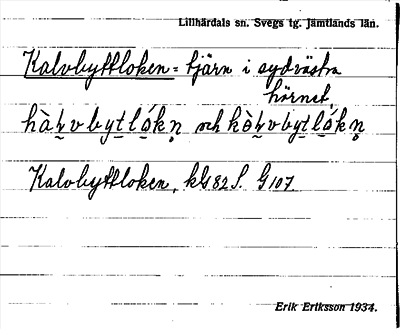 Lillhärdals sn. Svegs tg. Jämtlands län.
Kalvbyttloken = tjärn i sydvästra
hörnet
och
Kalvbyttloken, kbl 82 S. G 107
Erik Eriksson 1934.